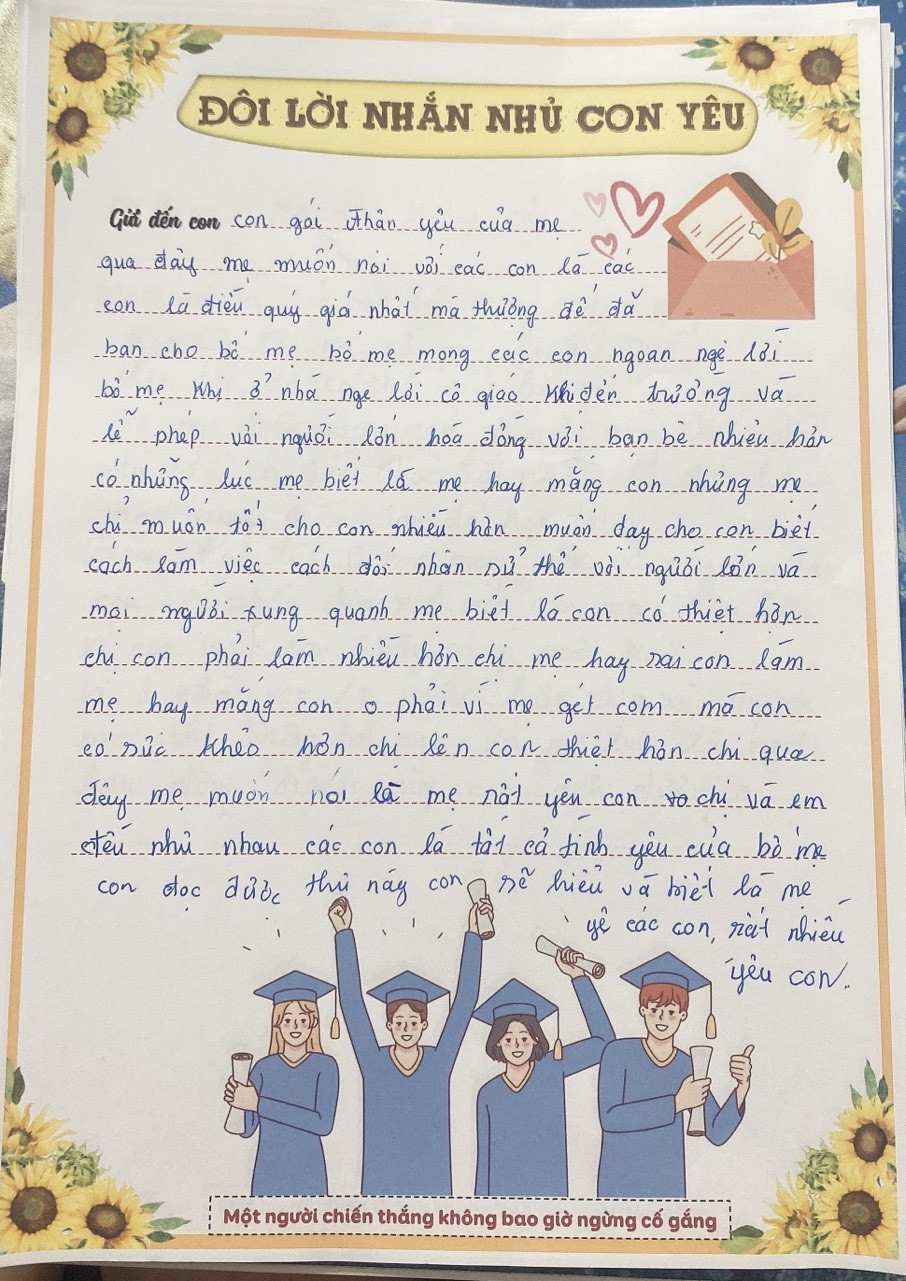 ĐÔI LỜI NHẮN NHỦ CON YÊU
Gửi đến con con gái thân yêu của mẹ
qua đây mẹ muốn nói với các con là các
con là điều quý giá nhất mà thường đế đã
ban cho bố mẹ bố mẹ mong các con ngoan nge lời
bố mẹ khi ở nhà nge lời cô giáo khi đến trường và
lễ phép với người lớn hoà đồng với bạn bè nhiều hơn
có những lúc mẹ biết là mẹ hay mắng con nhưng mẹ
chỉ muốn tốt cho con nhiều hơn muốn dạy cho con biết
cách làm việc cách đối nhân sử thế với người lớn và
mọi người xung quanh mẹ biết là con có thiệt hơn
chị con phải làm nhiều hơn chị mẹ hay sai con làm
mẹ hay mắng con o phải vì mẹ gét com mà con
có sức khẻo hơn chị lên con thiệt hơn chị qua
đây mẹ muốn nói là mẹ rất yêu con chị và em
đều như nhau các con là tất cả tình yêu của bố mẹ
con đọc được thư này con sẽ hiểu và biết là mẹ
yê các con, rất nhiều
yêu con..
Một người chiến thắng không bao giờ ngừng cố gắng